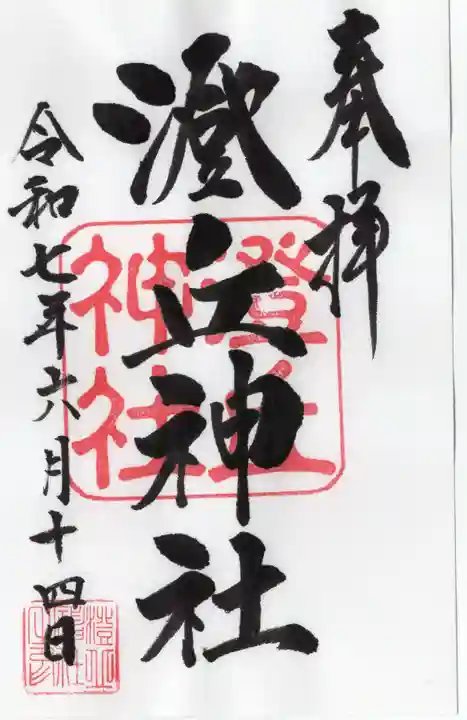 奉拝
澄丘神社
令和七年六月十四日
澄丘
神社